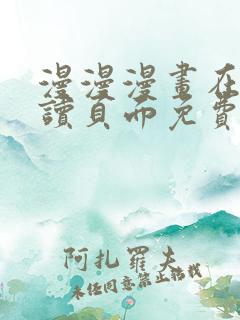 漫漫漫畫在
讀頁面免費
阿扎羅夫
未经同意禁止转载